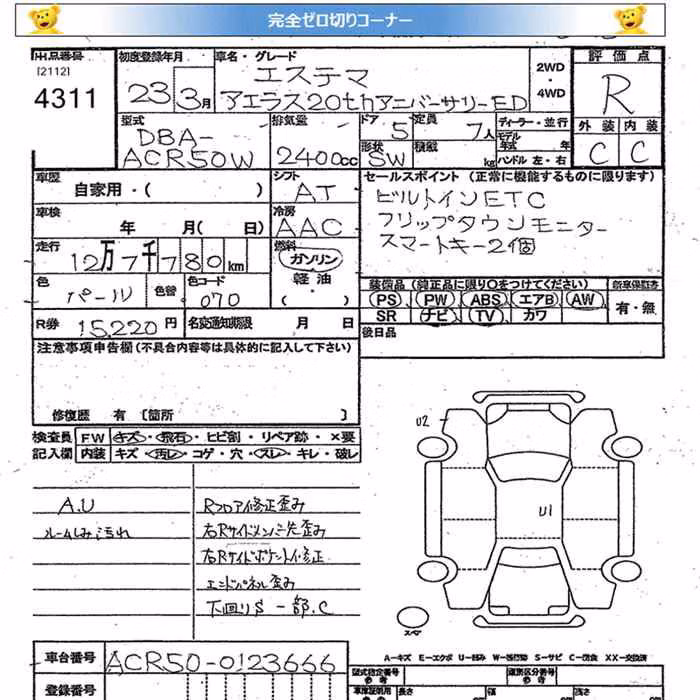 完全ゼロ切りコーナー
出品番号 初度登録年月 車名・グレード 評価点
[2112] 4311 23年 3月 エステマ 2WD・4WD R
アエラス20thアニバーサリーED
外装 内装
C C
型式 排気量 ドア 5 定員 7人 ディーラー・並行
DBA-
ACR50W 2400cc 形状 SW 積載 kg モデル年式 年 ハンドル 左・右
車歴 シフト セールスポイント (正常に機能するものに限ります)
自家用・( ) AT ビルトインETC
車検 冷房 フリップダウンモニター
年 月( 日) AAC スマートキー2個
走行 燃料
12万7千780km ガソリン
軽油
( )
色 色替 色コード 装備品 (純正品に限り○をつけてください) 新車保証書
パール 070 PS PW ABS エアB AW 有・無
SR ナビ TV カワ
R券 15,220円 名変通知期限 月 日 後日品
注意事項申告欄 (不具合内容等は具体的に記入して下さい)
修復歴 有 [箇所 ]
検査員 FW キズ・飛石・ヒビ割・リペア跡・×要
記入欄 内装 キズ・汚レ・コゲ・穴・スレ・キレ・破レ
U2
U1
スペア
A.U Rフロア修正歪み
ルームしみ汚れ 右Rサイドメンバー先歪み
右Rサイドポケット修正
エンドパネル歪み
下回りS一部.C
車台番号 ACR50-0123666
A-キズ E-エクボ U-凹み W-波打ち S-サビ C-腐食 XX-交換済
登録番号
型式指定番号 参考 類別区分番号 参考
長さ 幅 高さ